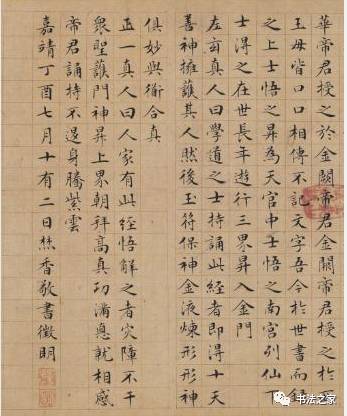 華帝君授之於金闕帝君金闕帝君授之於西
王母皆口口相傳不記文字吾今於世書而錄
之上士悟之昇為天官中士悟之南宮列仙下
士得之在世長年遊行三界昇入金門
左玄真人曰學道之士持誦此經者即得十天
善神擁護其人然後玉符保神金液煉形形神
俱妙與道合真
正一真人曰人家有此經悟解之者灾障不干
衆聖護門神昇上界朝拜高真功滿悳就相感
帝君誦持不退身騰紫雲
嘉靖丁酉七月十有二日焚香敬書徵明
書法之家